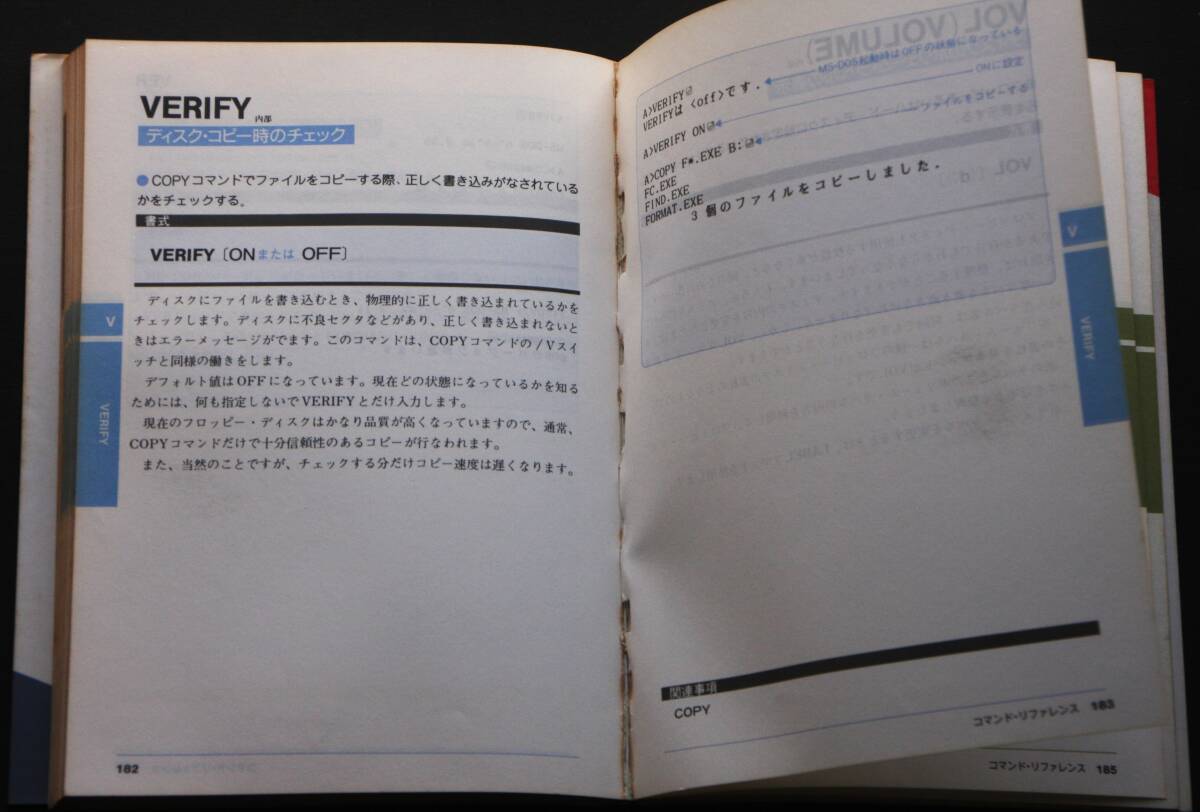 VERIFY
内部
ディスク・コピー時のチェック
●COPYコマンドでファイルをコピーする際、正しく書き込みがなされている
かをチェックする。
書式
VERIFY〔ONまたは OFF〕
ディスクにファイルを書き込むとき、物理的に正しく書き込まれているかを
チェックします。ディスクに不良セクタなどがあり、正しく書き込まれないと
きはエラーメッセージがでます。このコマンドは、COPYコマンドの/Vスイ
ッチと同様の働きをします。
デフォルト値はOFFになっています。現在どの状態になっているかを知る
ためには、何も指定しないでVERIFYとだけ入力します。
現在のフロッピー・ディスクはかなり品質が高くなっていますので、通常、
COPYコマンドだけで十分信頼性のあるコピーが行なわれます。
また、当然のことですが、チェックする分だけコピー速度は遅くなります。
V
VERIFY
182
A>VERIFY
VERIFYは <off>です.
MS-DOS起動時はOFFの状態になっている
A>VERIFY ON
ONに設定
A>COPY F*.EXE B:
ファイルをコピーする
FC.EXE
FIND.EXE
FORMAT.EXE
3 個のファイルをコピーしました.
V
VERIFY
関連事項
COPY
コマンド・リファレンス 183
コマンド・リファレンス 185